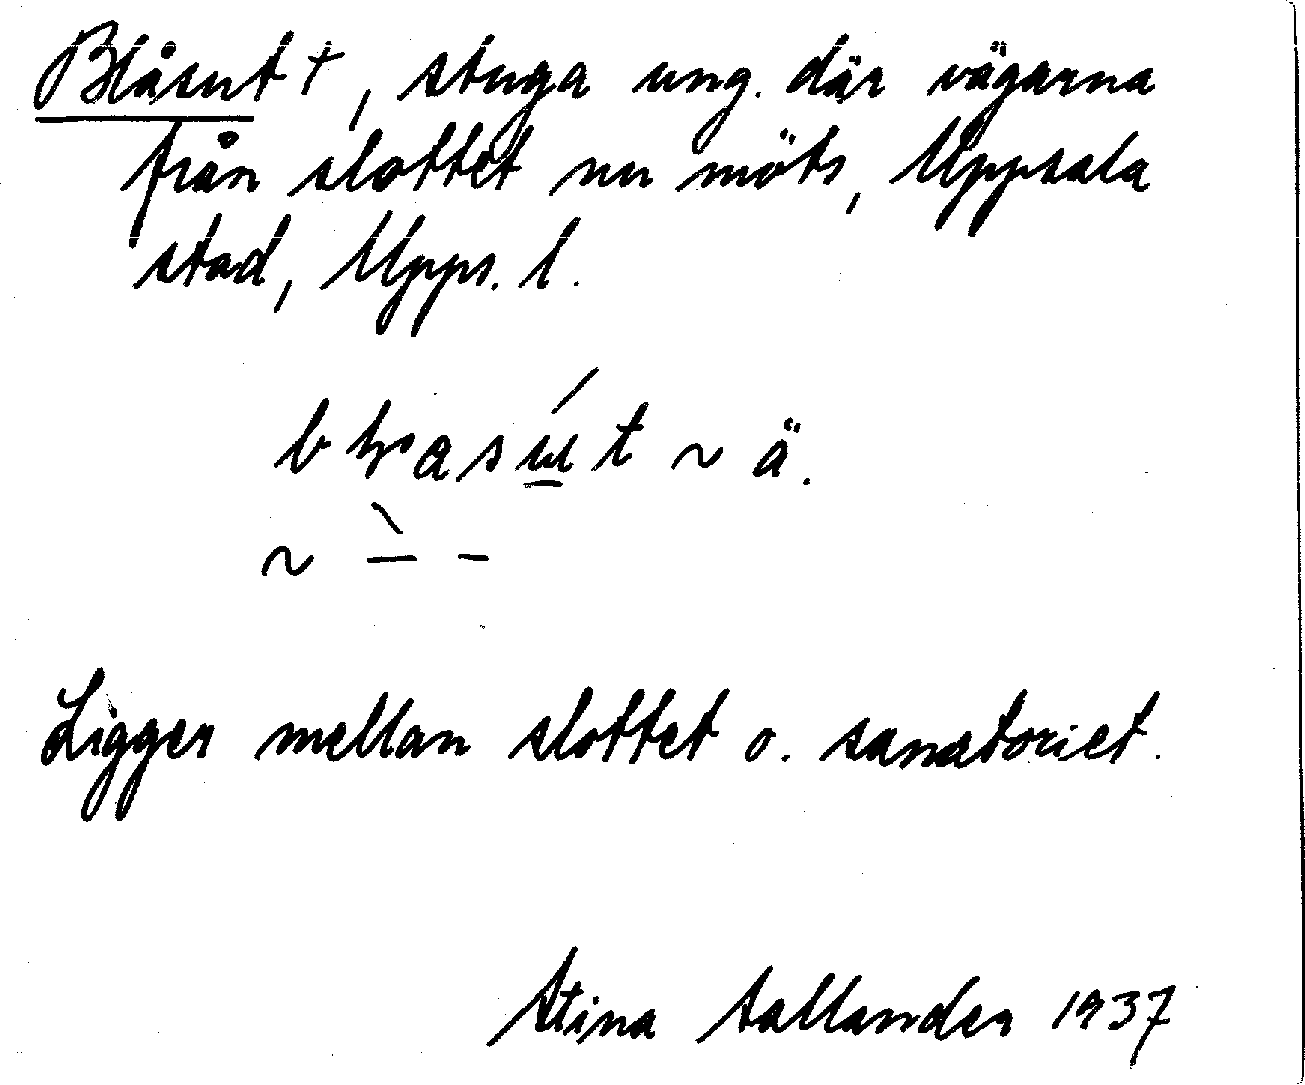 Blåsut †, stuga ung. där vägarna
från slottet nu möts, Uppsala
stad, Upps. l.
~ ä.
~ –̀ -
Ligger mellan slottet o. sanatoriet.
Stina Sallander 1937